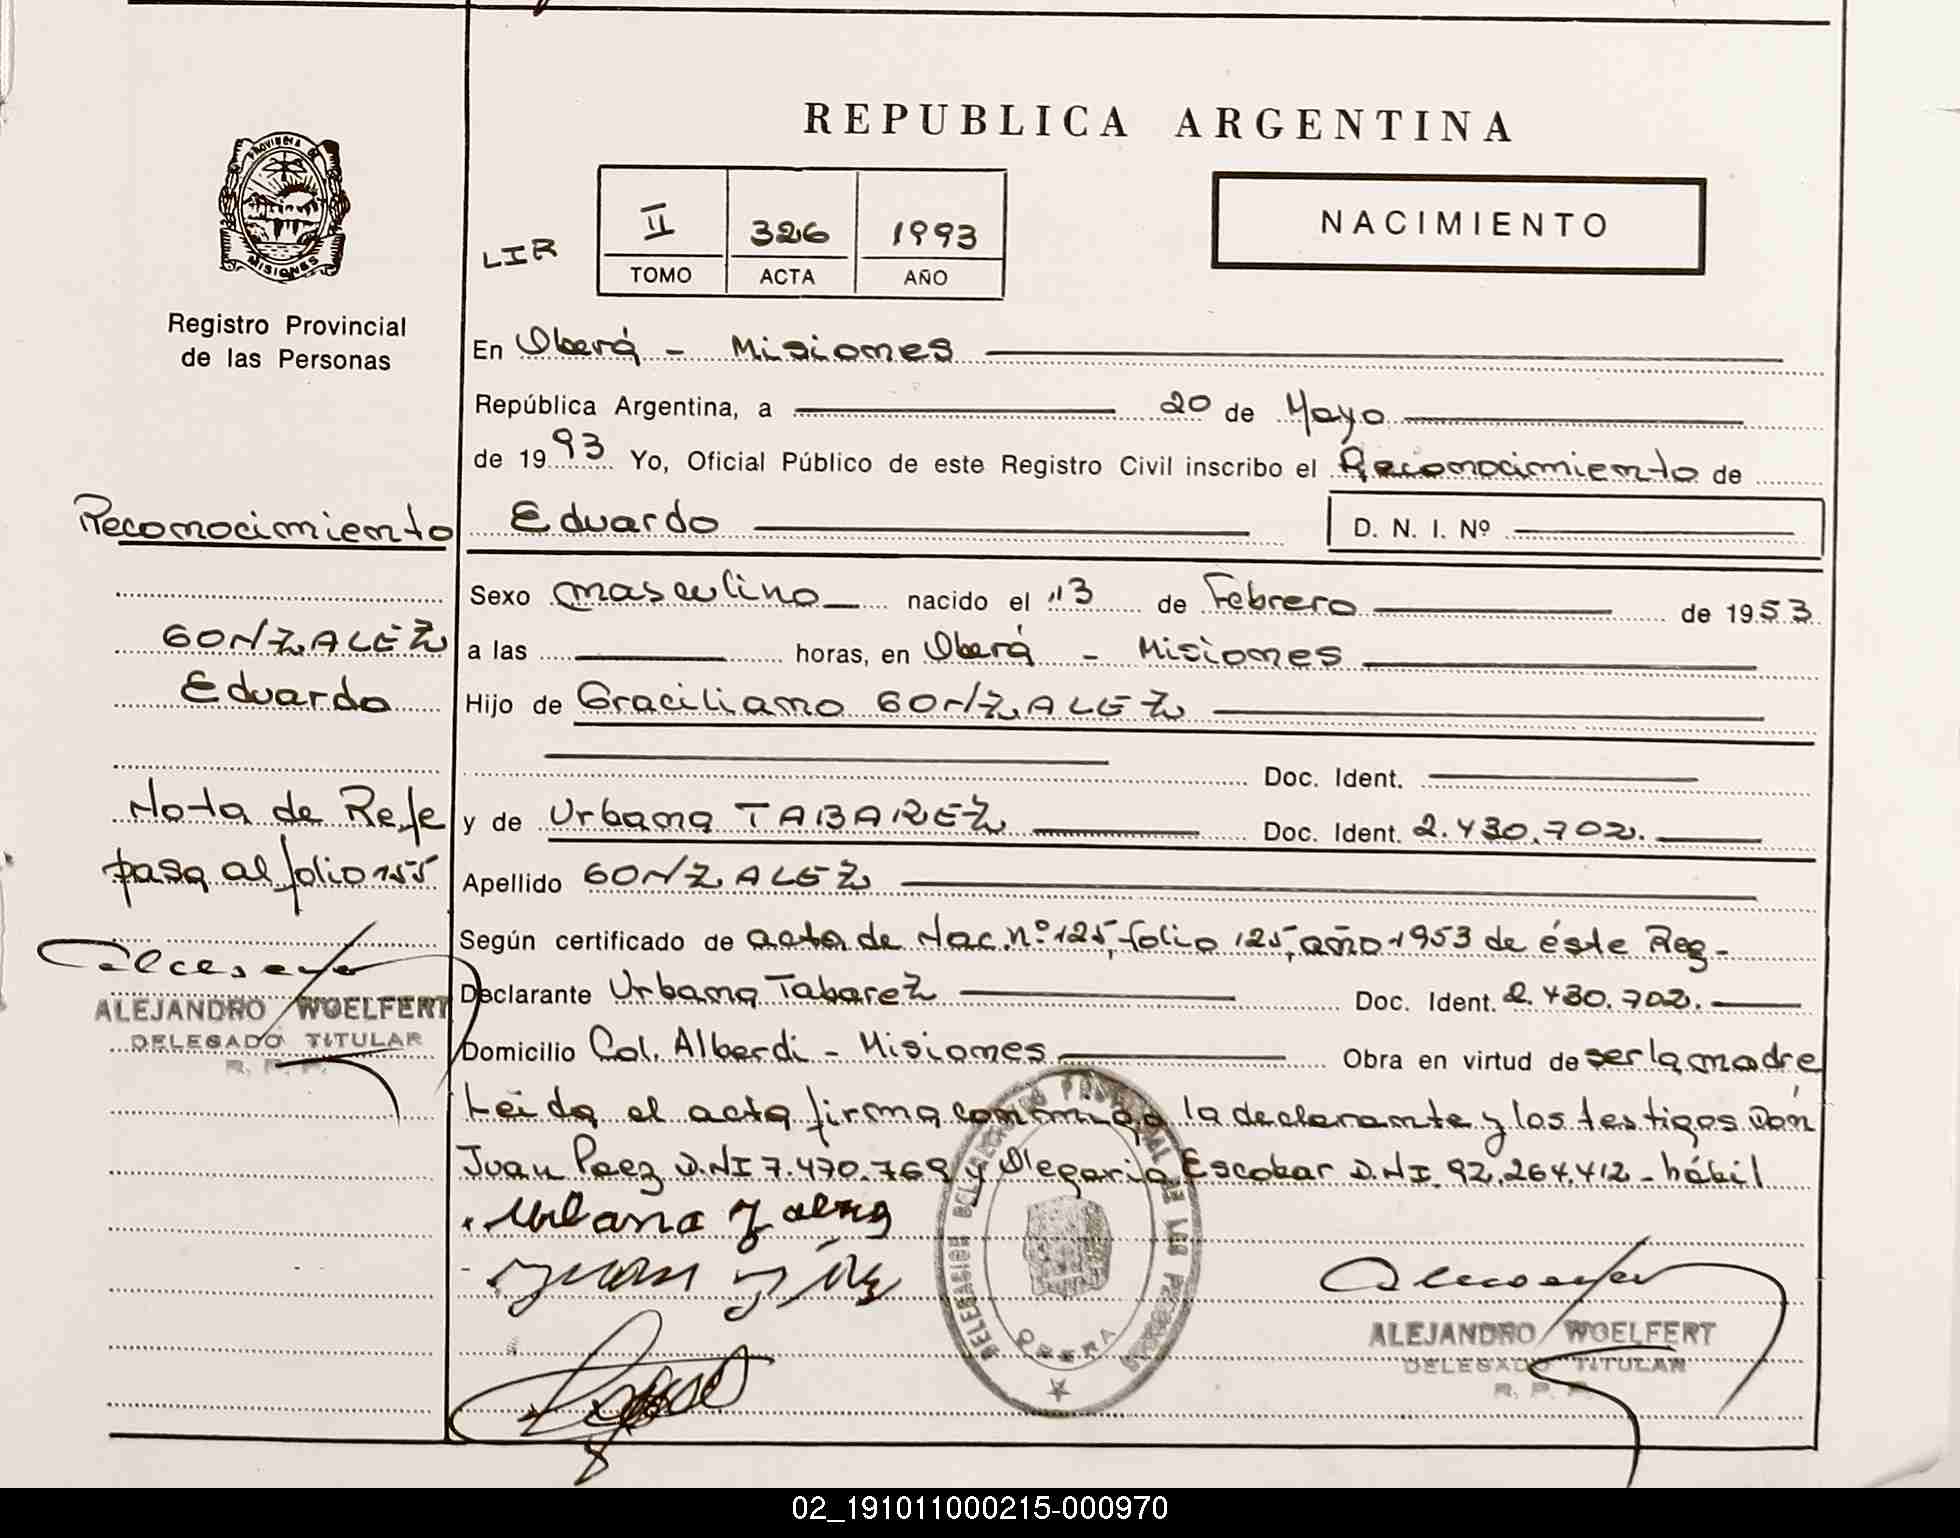 REPUBLICA ARGENTINA
PROVINCIA DE
MISIONES
Registro Provincial
de las Personas
LIR
II 326 1993
TOMO ACTA AÑO
NACIMIENTO
En Oberá - Misiones
República Argentina, a 20 de Mayo
de 1993 Yo, Oficial Público de este Registro Civil inscribo el Reconocimiento de
Eduardo D. N. I. Nº
Reconocimiento
GONZALEZ
Eduardo
Nota de Refe
pasa al folio 155
ALEJANDRO WOELFERT
DELEGADO TITULAR
R. P. P.
Sexo masculino nacido el 13 de Febrero de 1953
a las horas, en Oberá - Misiones
Hijo de Graciliano GONZALEZ
Doc. Ident.
y de Urbana TABAREZ Doc. Ident. 2.430.702.
Apellido GONZALEZ
Según certificado de acta de Nac. nº 125, folio 125, año 1953 de éste Reg-
Declarante Urbana Tabarez Doc. Ident. 2.430.702.
Domicilio Col. Alberdi - Misiones Obra en virtud de ser la madre
Leida el acta firma conmigo la declarante y los testigos Don
Juan Paez D.NI 7.470.769 y Olegario Escobar D.N.I. 92.264.412 - hábil
DELEGACION DEL REGISTRO PROVINCIAL DE LAS PERSONAS
OBERA
ALEJANDRO WOELFERT
DELEGADO TITULAR
R. P. P.
02_191011000215-000970